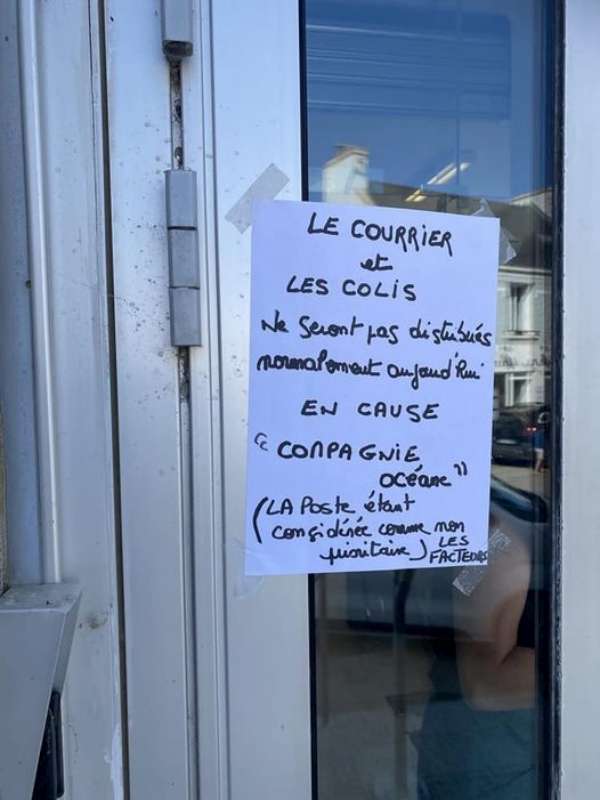 LE COURRIER
et
LES COLIS
Ne seront pas distribués
normalement aujourd'hui
EN CAUSE
"COMPAGNIE
océane"
(LA Poste étant
considérée comme non
prioritaire)
LES
FACTEURS